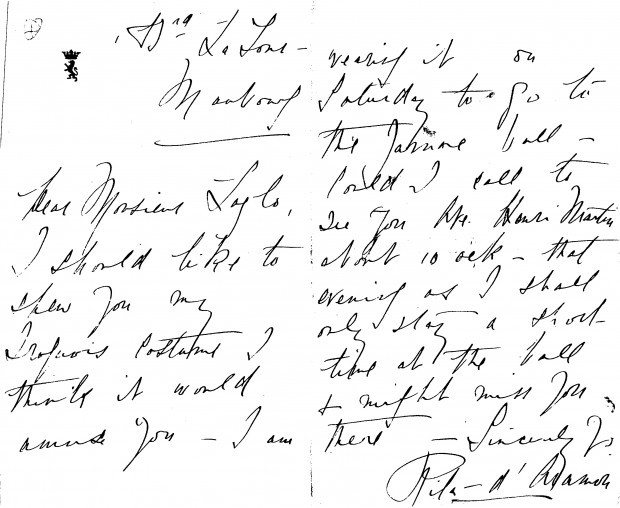 , Bd La Tour-
Maubourg
Dear Monsieur
I should like to
shew you my
Iroquois costume I
think it would
amuse you — I am
wearing it on
Saturday to go to
the ball —
Could I call to
see you Ave. Henri Martin
about 10 ock — that
evening as I shall
only stay a short
time at the ball
& might miss you
there — Sincerely Yo.
Rita d'